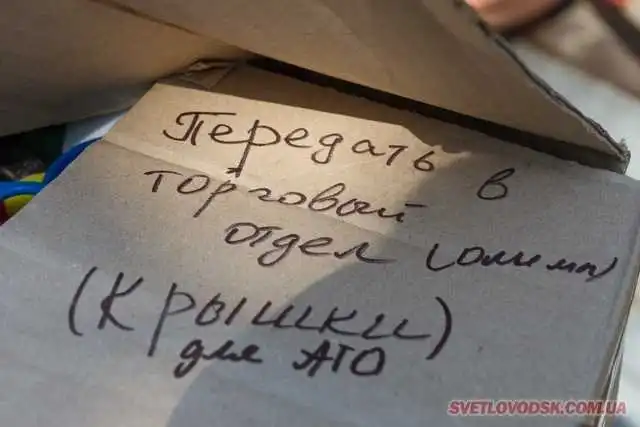 Передать в
торговый
отдел (олимп)
(Крышки)
для АТО
SVETLOVODSK.COM.UA